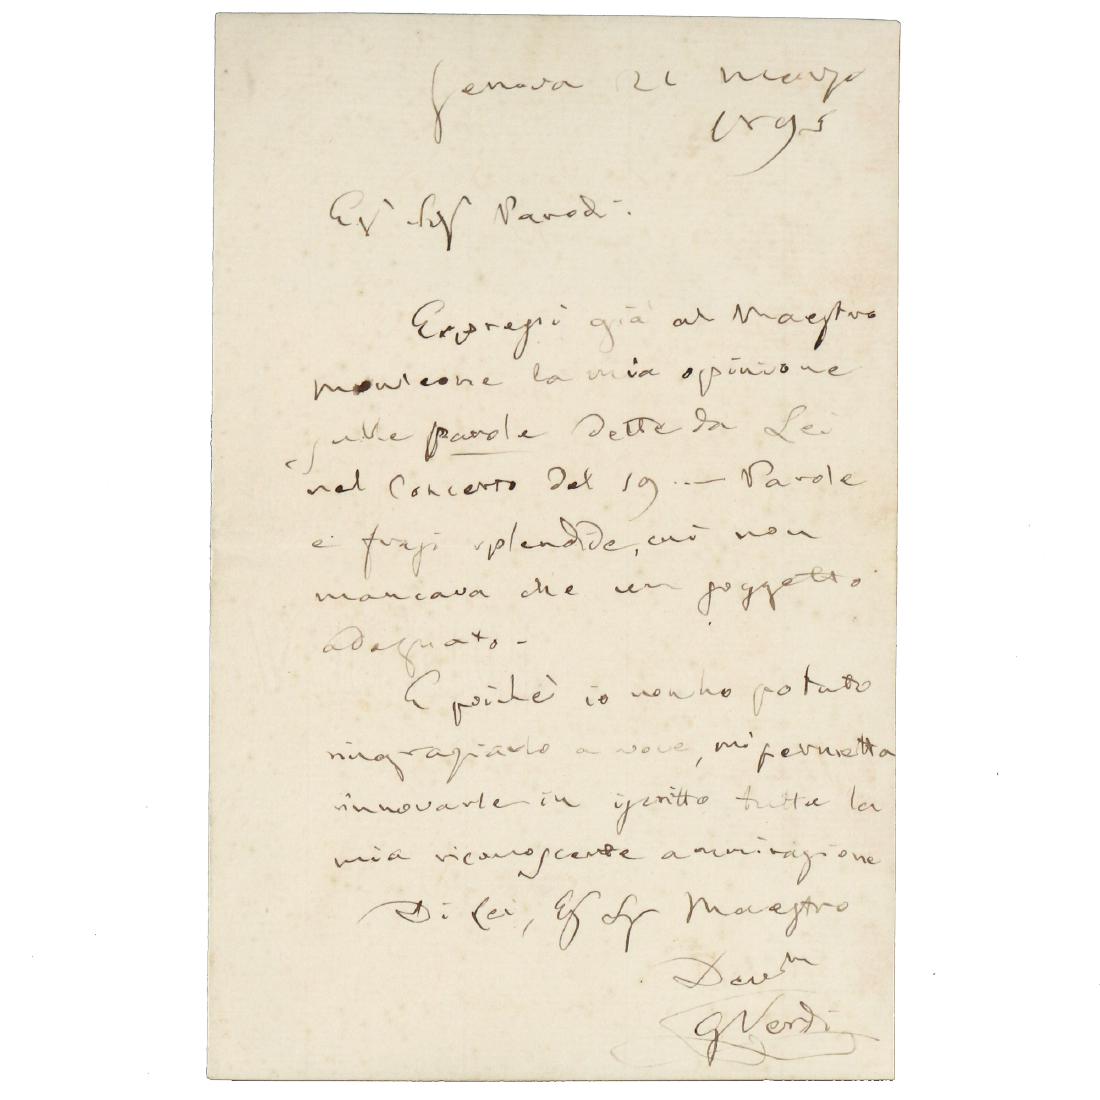 Genova 21 marzo
1895
Eg Sig Parodi.
Espressi già al Maestro
Monleone la mia opinione
sulle parole dette da Lei
nel Concerto del 19 .— Parole
e frasi splendide, cui non
mancava che un soggetto
adeguato –
E poiché io non ho potuto
ringraziarlo a voce, mi permetta
rinnovarle in iscritto tutta la
mia riconoscente ammirazione
Di Lei, Eg Sg Maestro
Dev.m
G Verdi